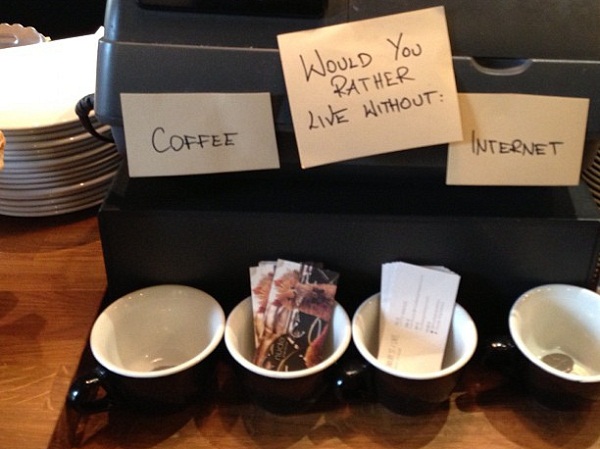 WOULD YOU
RATHER
LIVE WITHOUT:
COFFEE
INTERNET